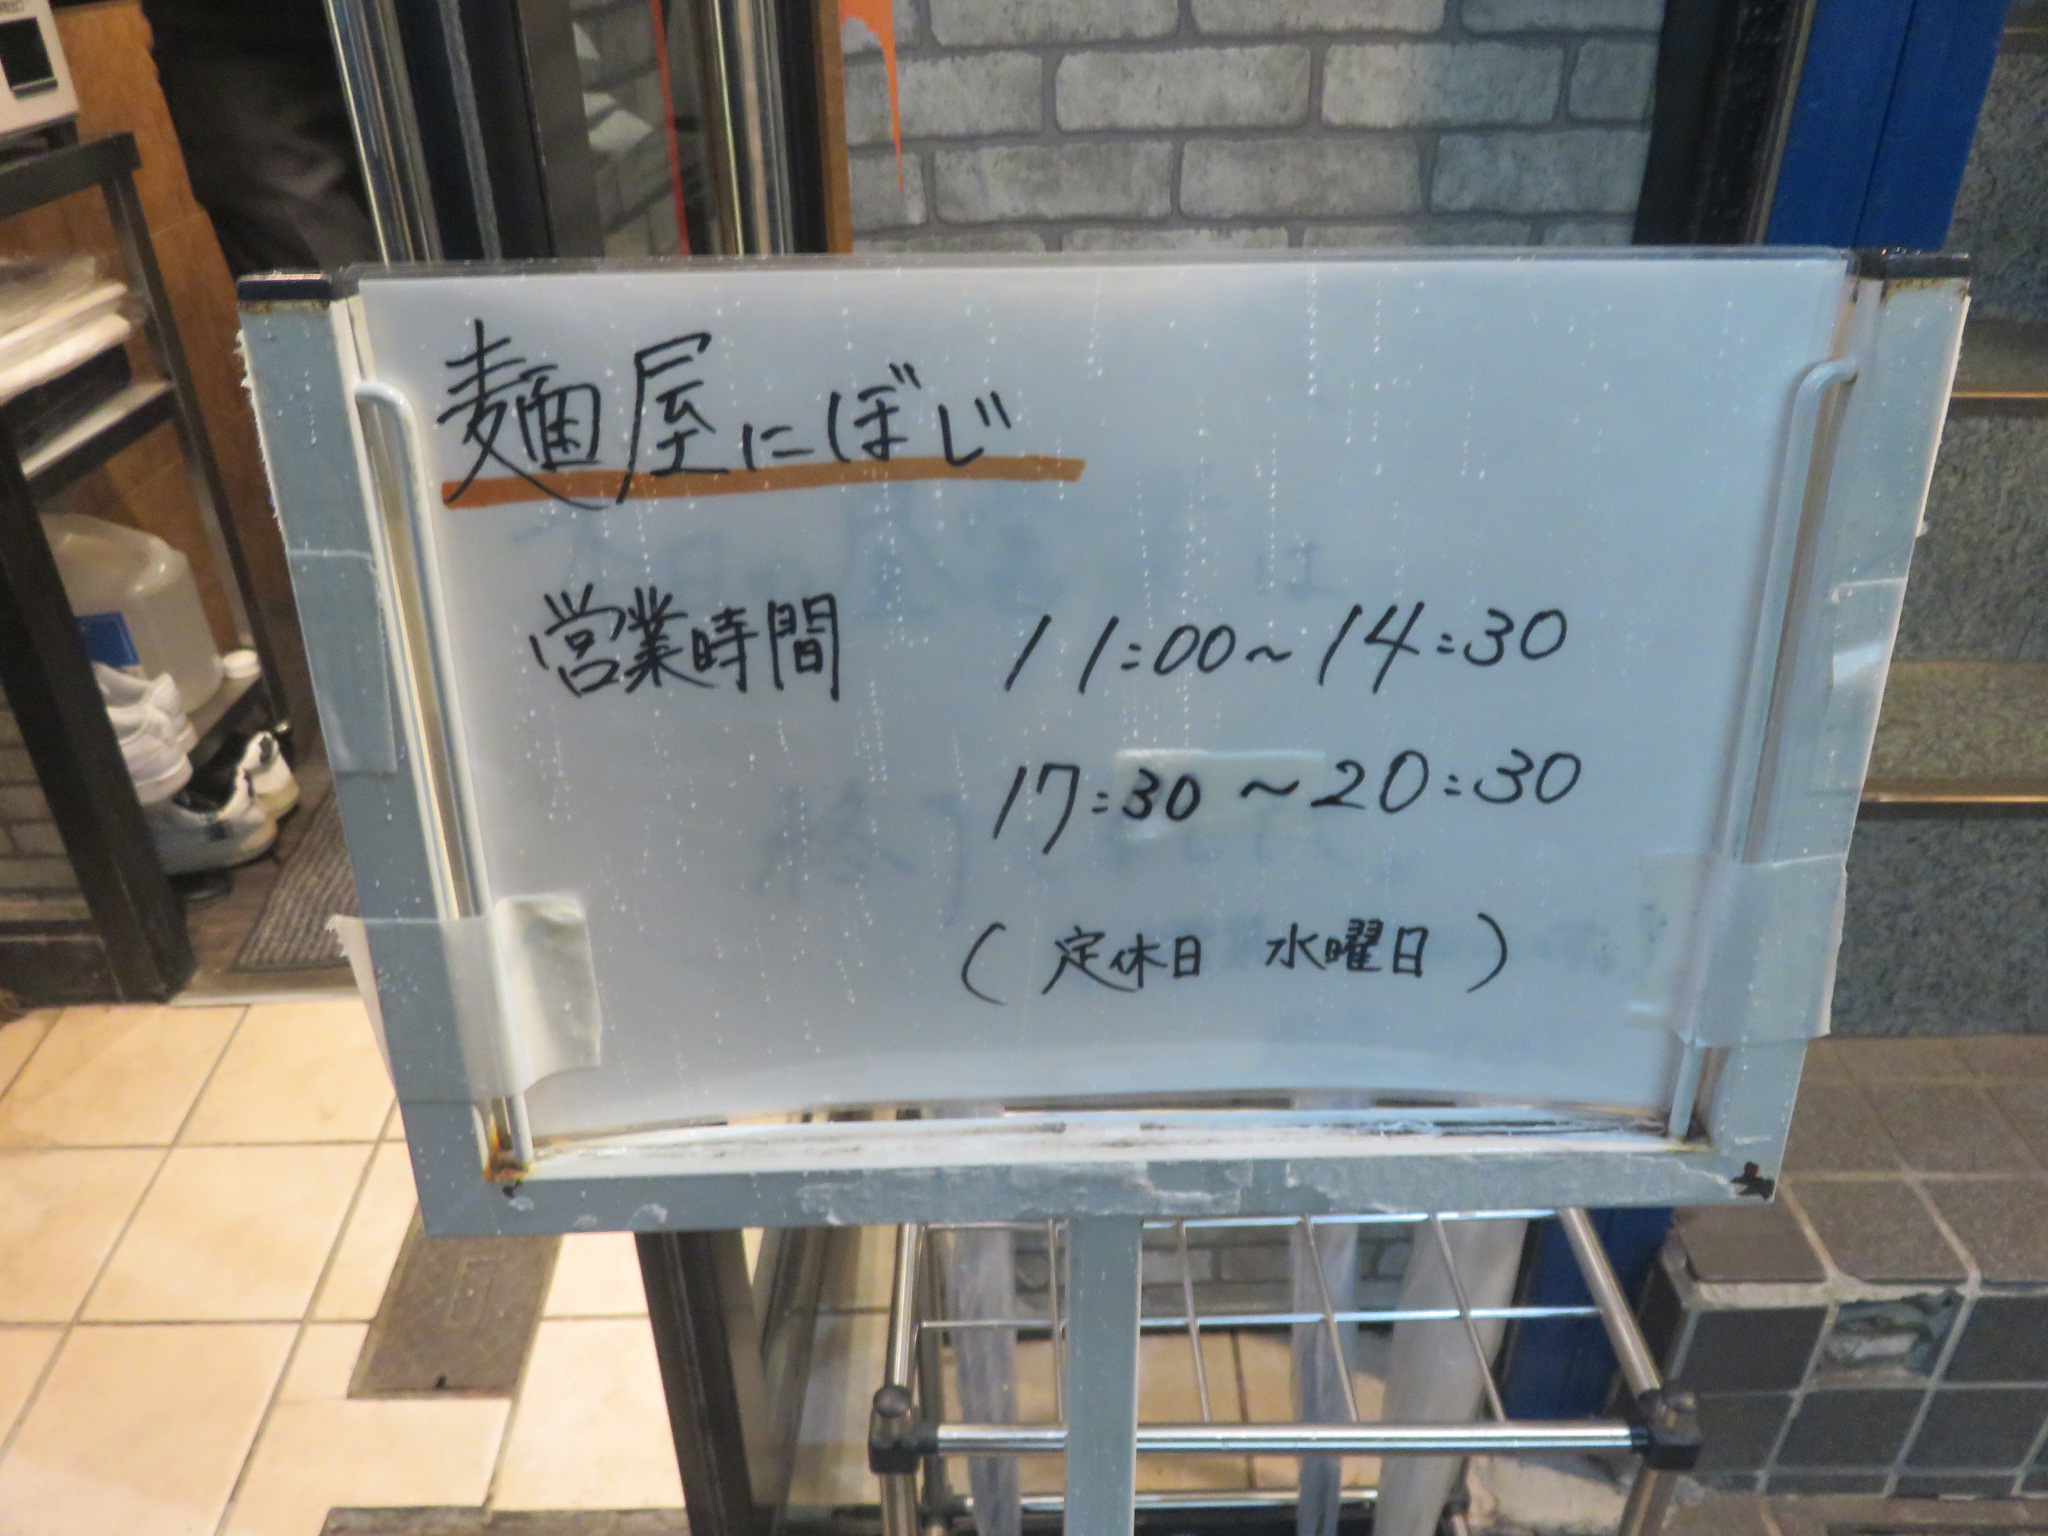 麺屋にぼじ
営業時間 11:00~14:30
17:30~20:30
(定休日 水曜日)